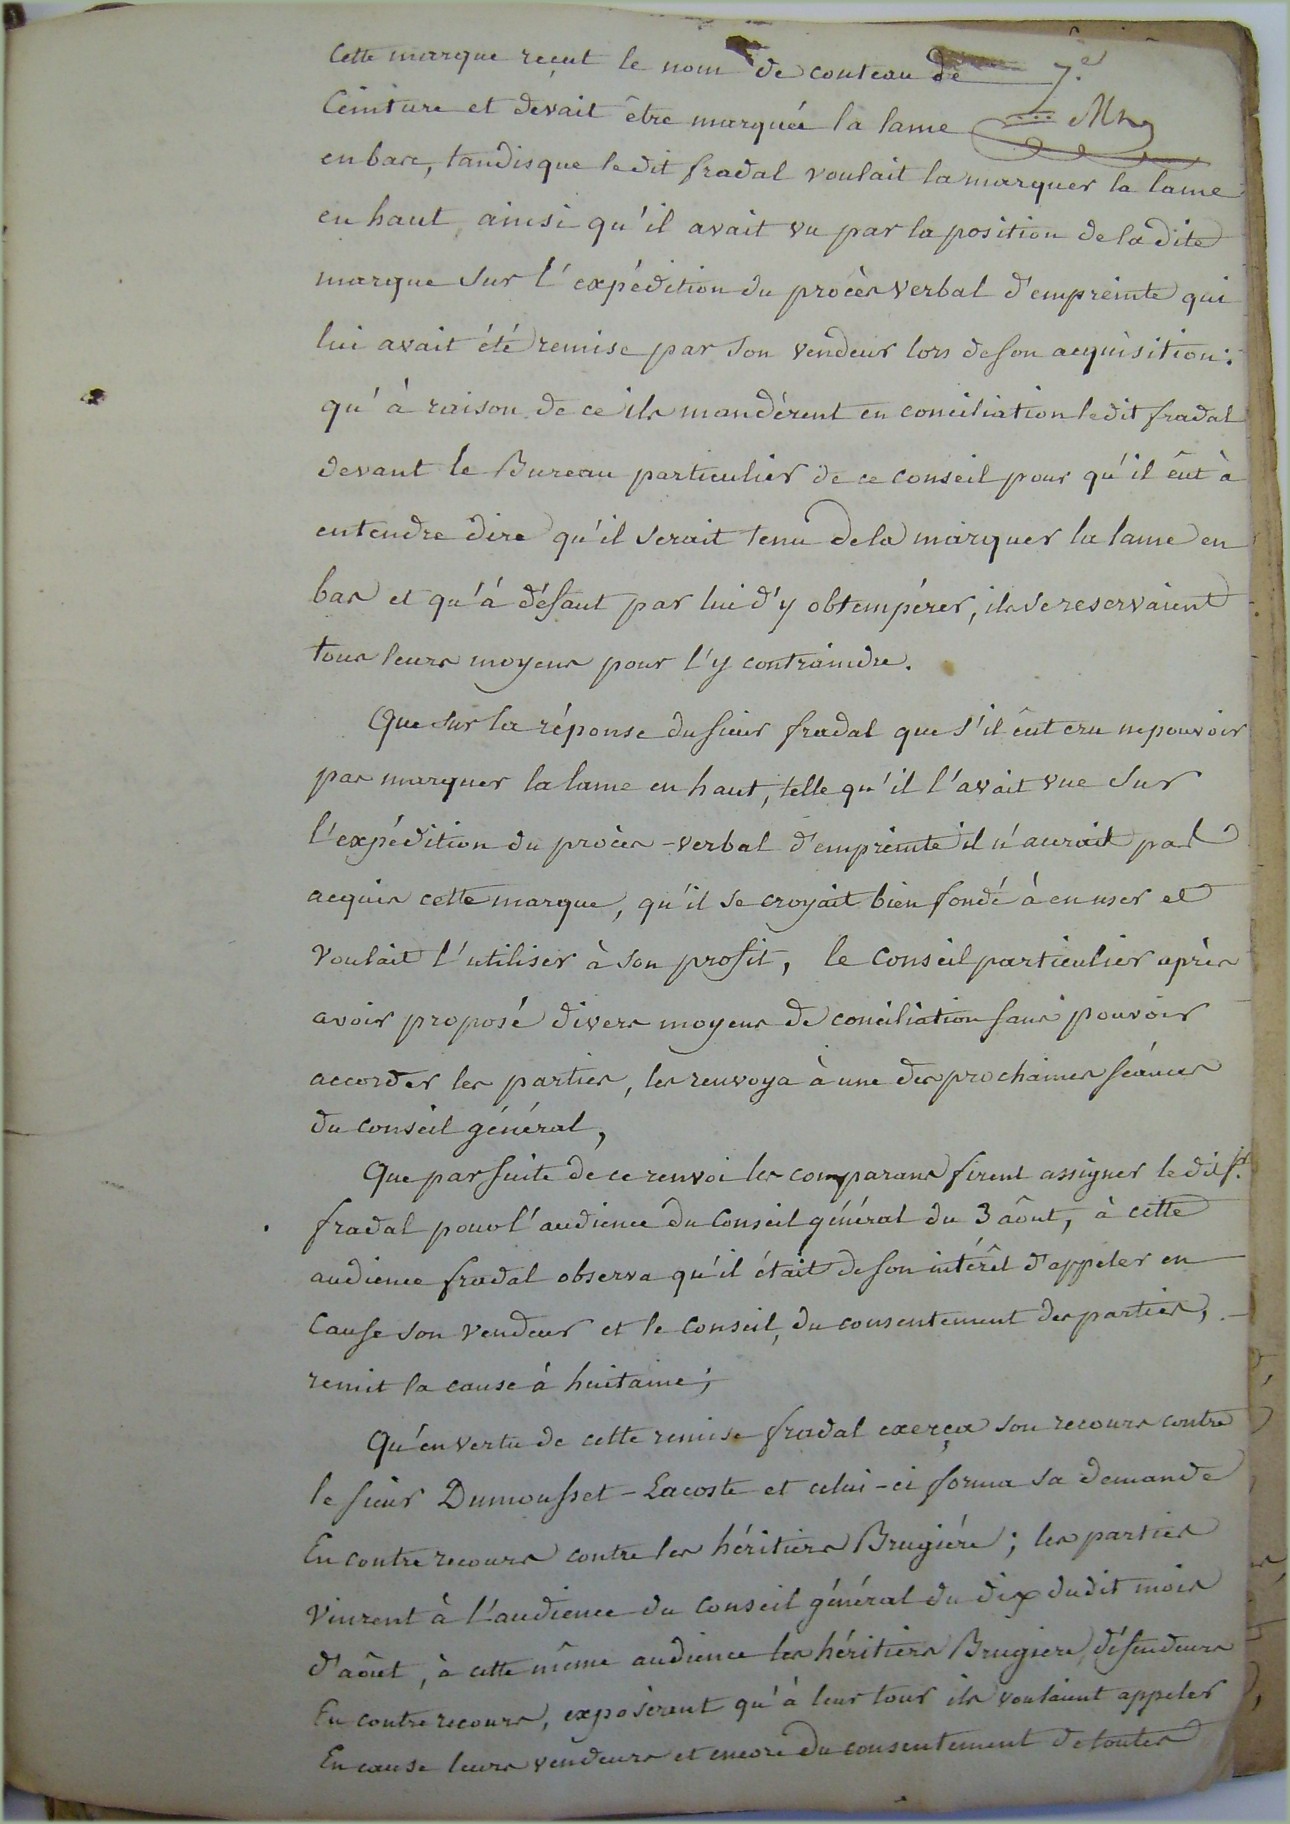 Cette marque reçut le nom de couteau de
7.e
Ceinture et devait être marquée la lame
en bas, tandisque ledit fradal voulait la marquer la lame
en haut, ainsi qu'il avait vu par la position de la dite
marque sur l'expédition du procès verbal d'empreinte qui
lui avait été remise par son vendeur lors de son acquisition:
qu'à raison de ce ils mandèrent en conciliation ledit fradal
devant le Bureau particulier de ce conseil pour qu'il eût à
entendre dire qu'il serait tenu de la marquer la lame en
bas et qu'à défaut par lui d'y obtempérer, ils se reservaient
tous leurs moyens pour l'y contraindre.
Que sur la réponse du sieur fradal que s'il eût cru ne pouvoir
pas marquer la lame en haut, telle qu'il l'avait vue sur
l'expédition du procès-verbal d'empreinte il n'aurait pas
acquis cette marque, qu'il se croyait bien fondé à en user et
voulait l'utiliser à son profit, le Conseil particulier après
avoir proposé divers moyens de conciliation sans pouvoir
accorder les parties, les renvoya à une des prochaines séances
du conseil général,
Que par suite de ce renvoi les comparans firent assigner le dit sr.
fradal pour l'audience du Conseil général du 3 août, à cette
audience fradal observa qu'il était de son intérêt d'appeler en
Cause son vendeur et le Conseil, du consentement des parties,
remit la cause à huitaine;
Qu'en vertu de cette remise fradal exerça son recours contre
le sieur Dumousset-Lacoste et celui-ci forma sa demande
En contre recours contre les héritiers Brugiére; les parties
vinrent à l'audience du Conseil général du dix dudit mois
d'août, à cette même audience les héritiers Brugiere, défendeurs
En contre recours, exposèrent qu'à leur tour ils voulaient appeler
En cause leurs vendeurs et encore du consentement de toutes